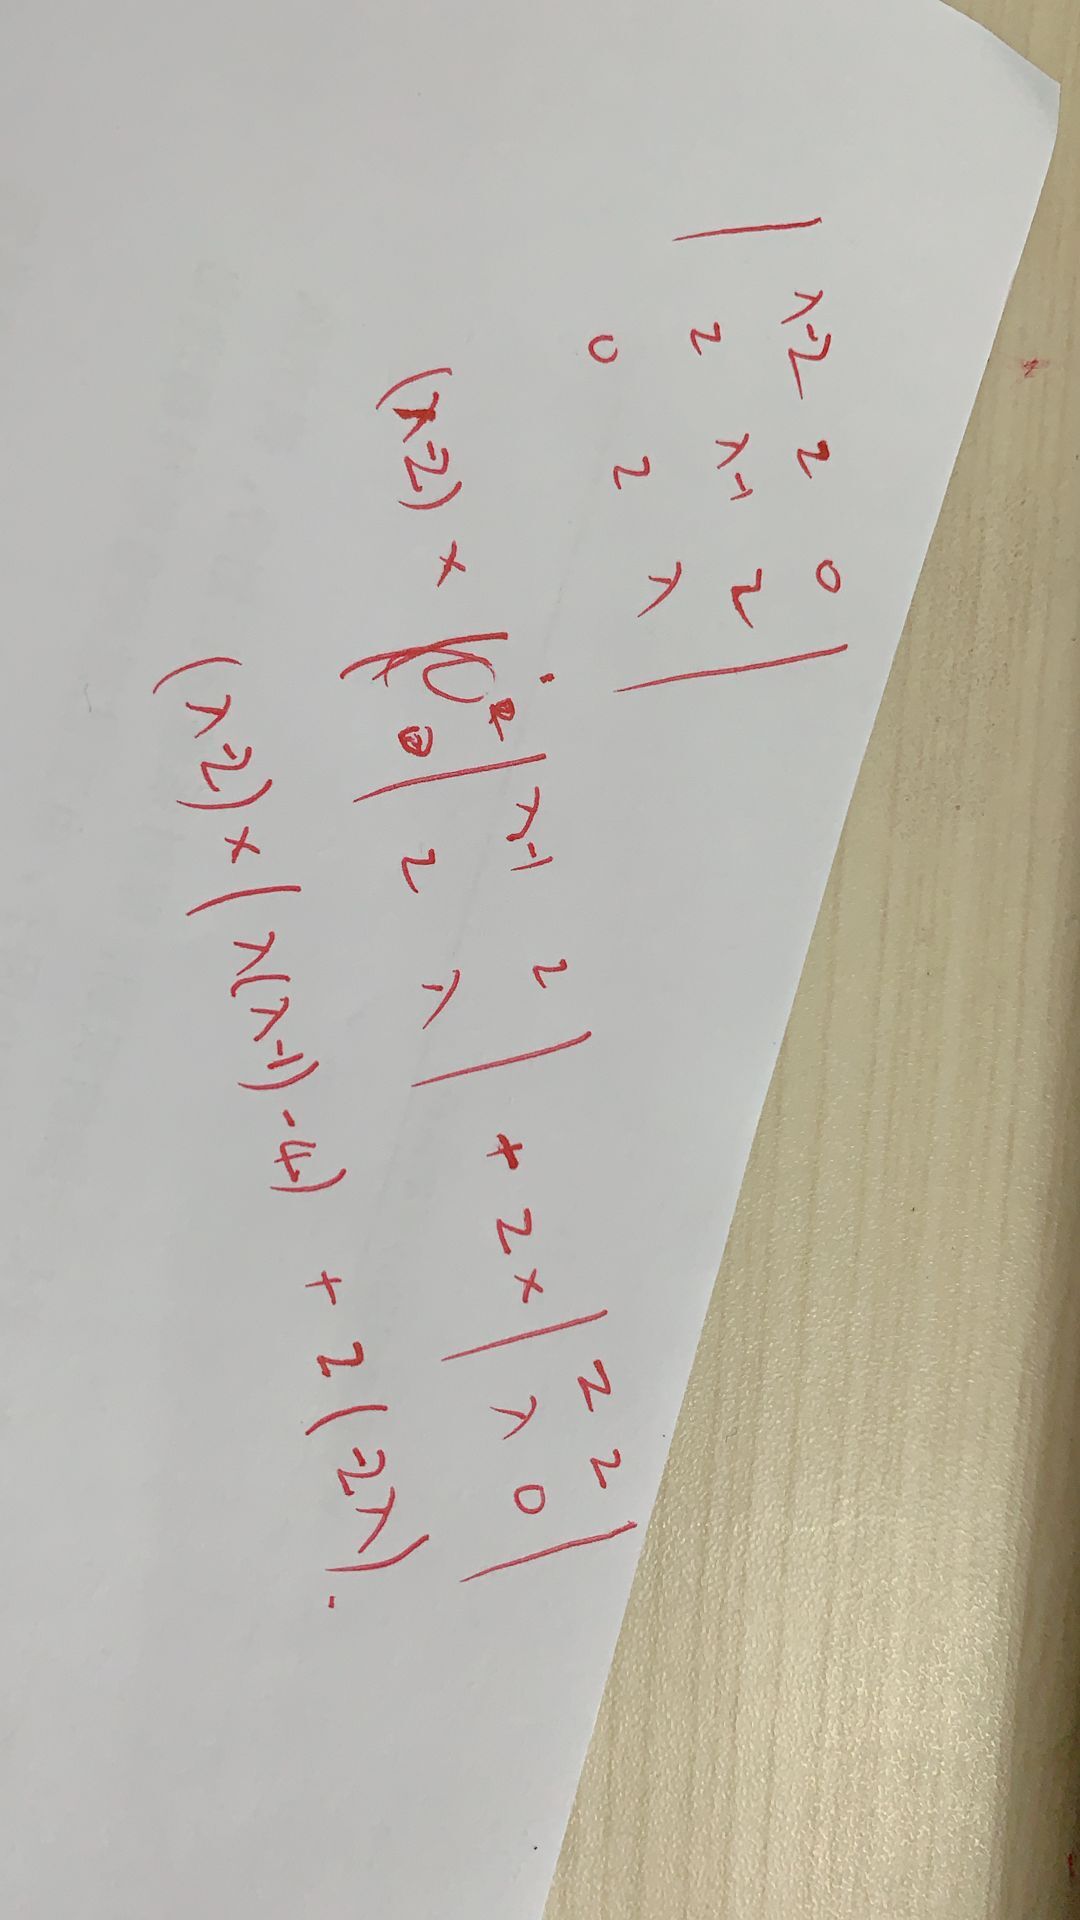 | λ-2 2 0
2 λ-1 2
0 2 λ |
(λ-2) × | λ-1 2
2 λ | + 2 × | 2 2
λ 0 |
(λ-2) × (λ(λ-1) -4) + 2(-2λ).